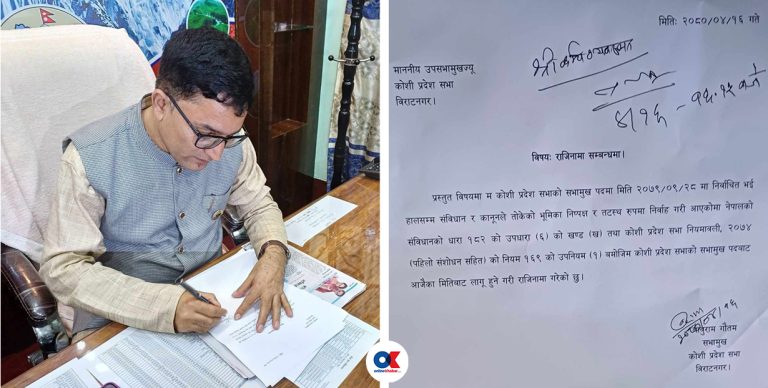 मिति: २०८०/०४/१६ गते
माननीय उपसभामुखज्यू
कोशी प्रदेश सभा
विराटनगर।
विषय: राजिनामा सम्बन्धमा।
प्रस्तुत विषयमा म कोशी प्रदेश सभाको सभामुख पदमा मिति २०७९/०९/२८ मा निर्वाचित भई
हालसम्म संविधान र कानूनले तोकेको भूमिका निष्पक्ष र तटस्थ रुपमा निर्वाह गरी आएकोमा नेपालको
संविधानको धारा १८२ को उपधारा (६) को खण्ड (ख) तथा कोशी प्रदेश सभा नियमावली, २०७४
(पहिलो संशोधन सहित) को नियम १६९ को उपनियम (१) बमोजिम कोशी प्रदेश सभाको सभामुख पदबाट
आजैका मितिबाट लागू हुने गरी राजिनामा गरेको छु।
गौतम
सभामुख
कोशी प्रदेश सभा
विराटनगर।
OK
onlinekhabar